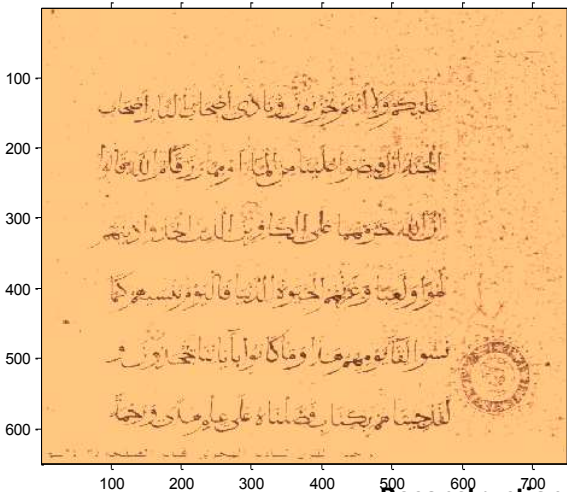 100
عليكم ولا أنتم تحزنون ونادى أصحاب النار أصحاب
200
الجنة أن أفيضوا علينا من الماء أو مما رزقكم الله قالوا
300
إن الله حرمهما على الكافرين الذين اتخذوا دينهم
400
لهوا ولعبا وغرتهم الحيوة الدنيا فاليوم ننسيهم كما
500
نسوا لقاء يومهم هذا وما كانوا بآياتنا يجحدون و
600
لقد جئناهم بكتاب فصلناه على علم هدى ورحمة
100 200 300 400 500 600 700